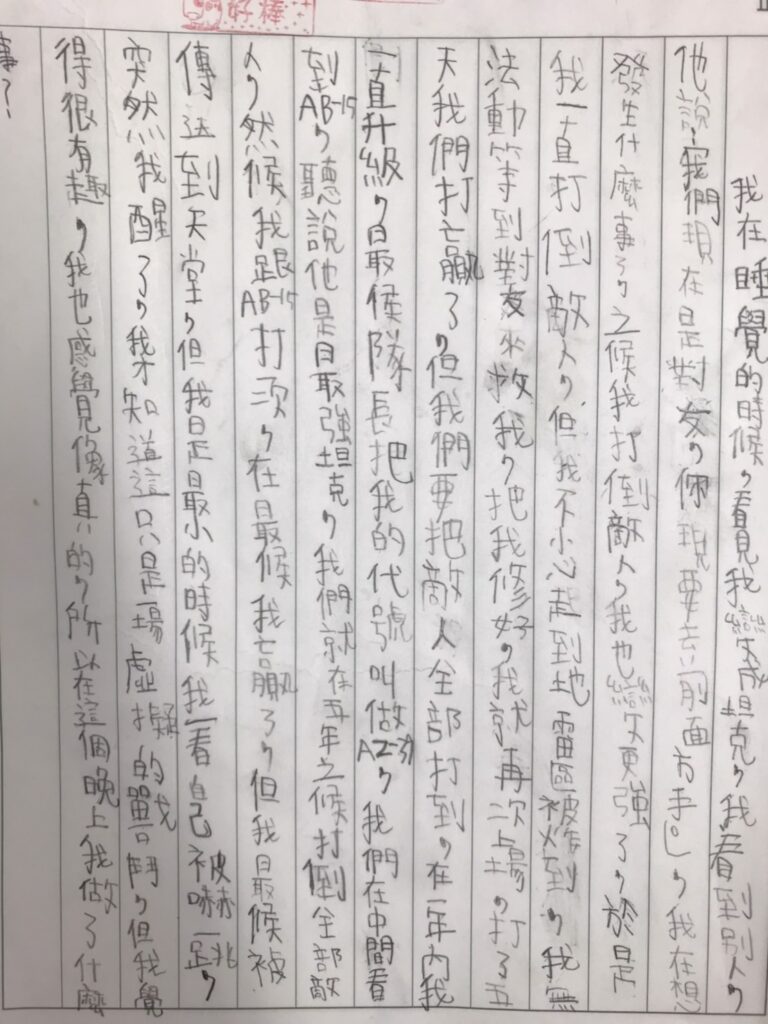 好棒
我在睡覺的時候,看見我變成坦克,我看到別人,
他說:我們現在是對友,你現要去前面方手」,我在想
發生什麼事了,之候我打倒敵人,我也變更強了,於是
我一直打倒敵人,但我不小心起到地雷區被炸到,我無
法動等到對友來救我,把我修好,我就再次上場,打了五
天我們打贏了,但我們要把敵人全部打到,在一年內我
一直升級,最侯隊長把我的代號叫做AZ-39,我們在中間看
到AB-15,聽說他是最強坦克,我們就在五年之候打倒全部敵
人,然候,我跟AB-15打,在最候我贏了,但我最候被
傳送到天堂,但我是最小的時候我一看自己被嚇一跳,
突然我醒了,我才知道這只是一場虛擬的單鬥,但我覺
得很有趣,我也感覺像真的,所以在這個晚上我做了什麼
事?